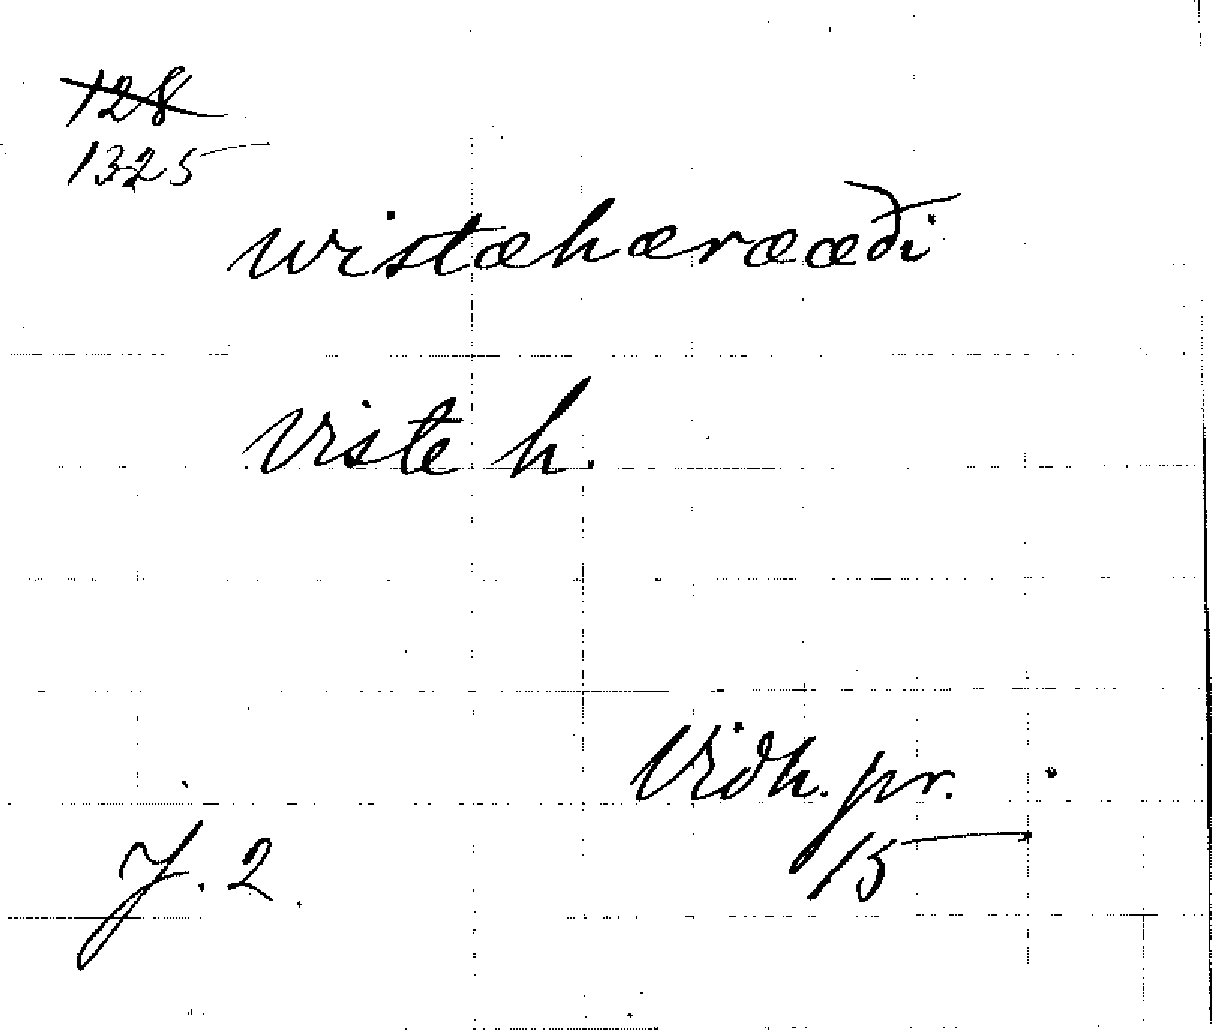 128
1325
wistæhæræædi
Viste h.
Vidh. pr.
15
J. 2.